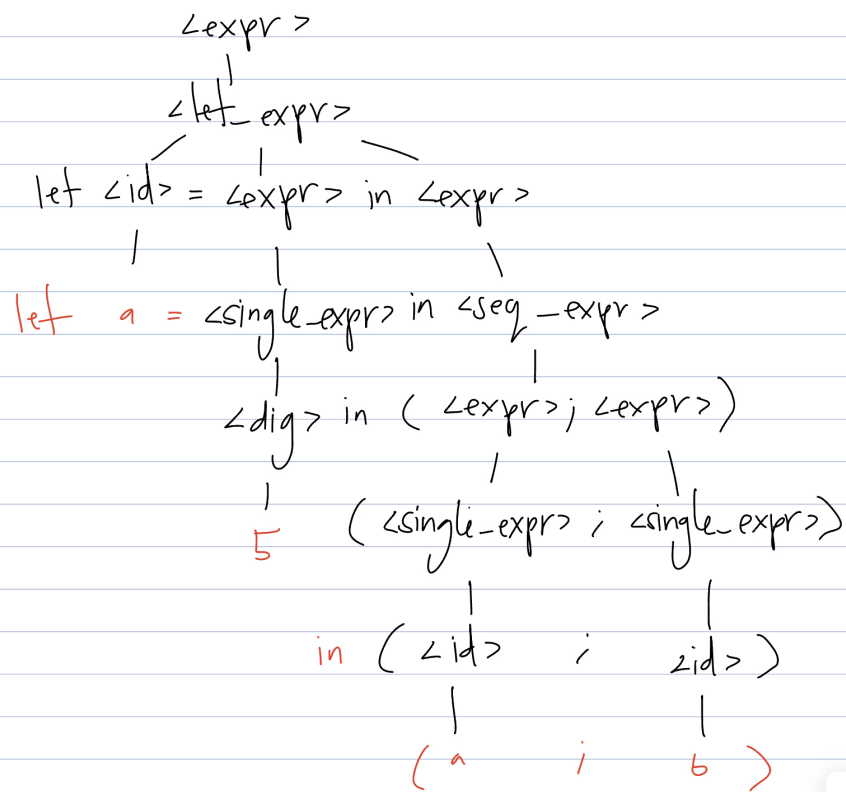 <expr>
<let_expr>
let <id> = <expr> in <expr>
let a = <single_expr> in <seq_expr>
<dig> in ( <expr>; <expr>)
5 ( <single_expr> ; <single_expr>)
in ( <id> ; <id> )
( a ; b )